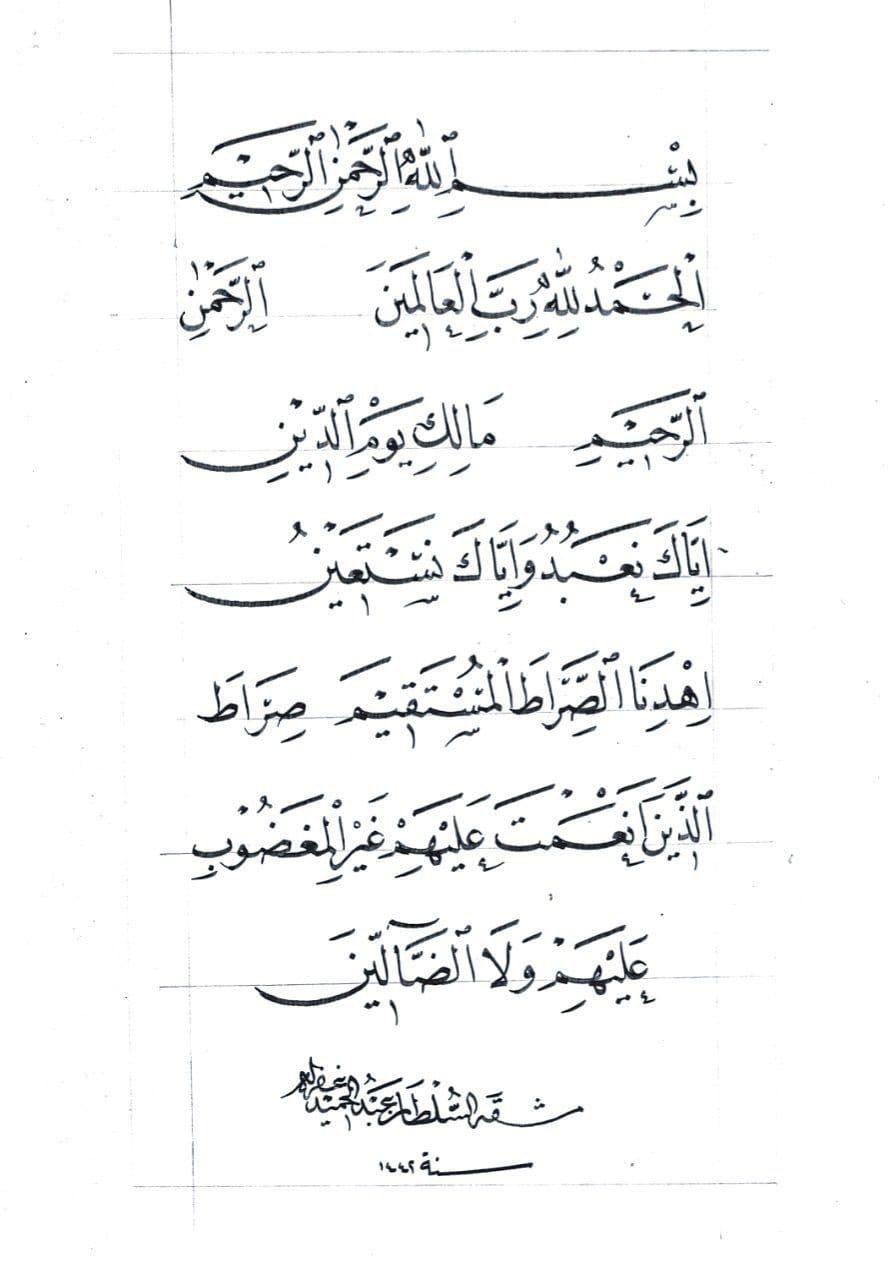 بِسْمِ اللّٰهِ الرَّحْمٰنِ الرَّحِيْمِ
اَلْحَمْدُ لِلّٰهِ رَبِّ الْعَالَمِيْنَ الرَّحْمٰنِ
الرَّحِيْمِ مَالِكِ يَوْمِ الدِّيْنِ
اِيَّاكَ نَعْبُدُ وَاِيَّاكَ نَسْتَعِيْنُ
اِهْدِنَا الصِّرَاطَ الْمُسْتَقِيْمَ صِرَاطَ
الَّذِيْنَ اَنْعَمْتَ عَلَيْهِمْ غَيْرِ الْمَغْضُوْبِ
عَلَيْهِمْ وَلَا الضَّآلِّيْنَ
مشقه السُّلْطَان عَبْدُ الحَمِيد غفر له
سنة ١٤٤٢